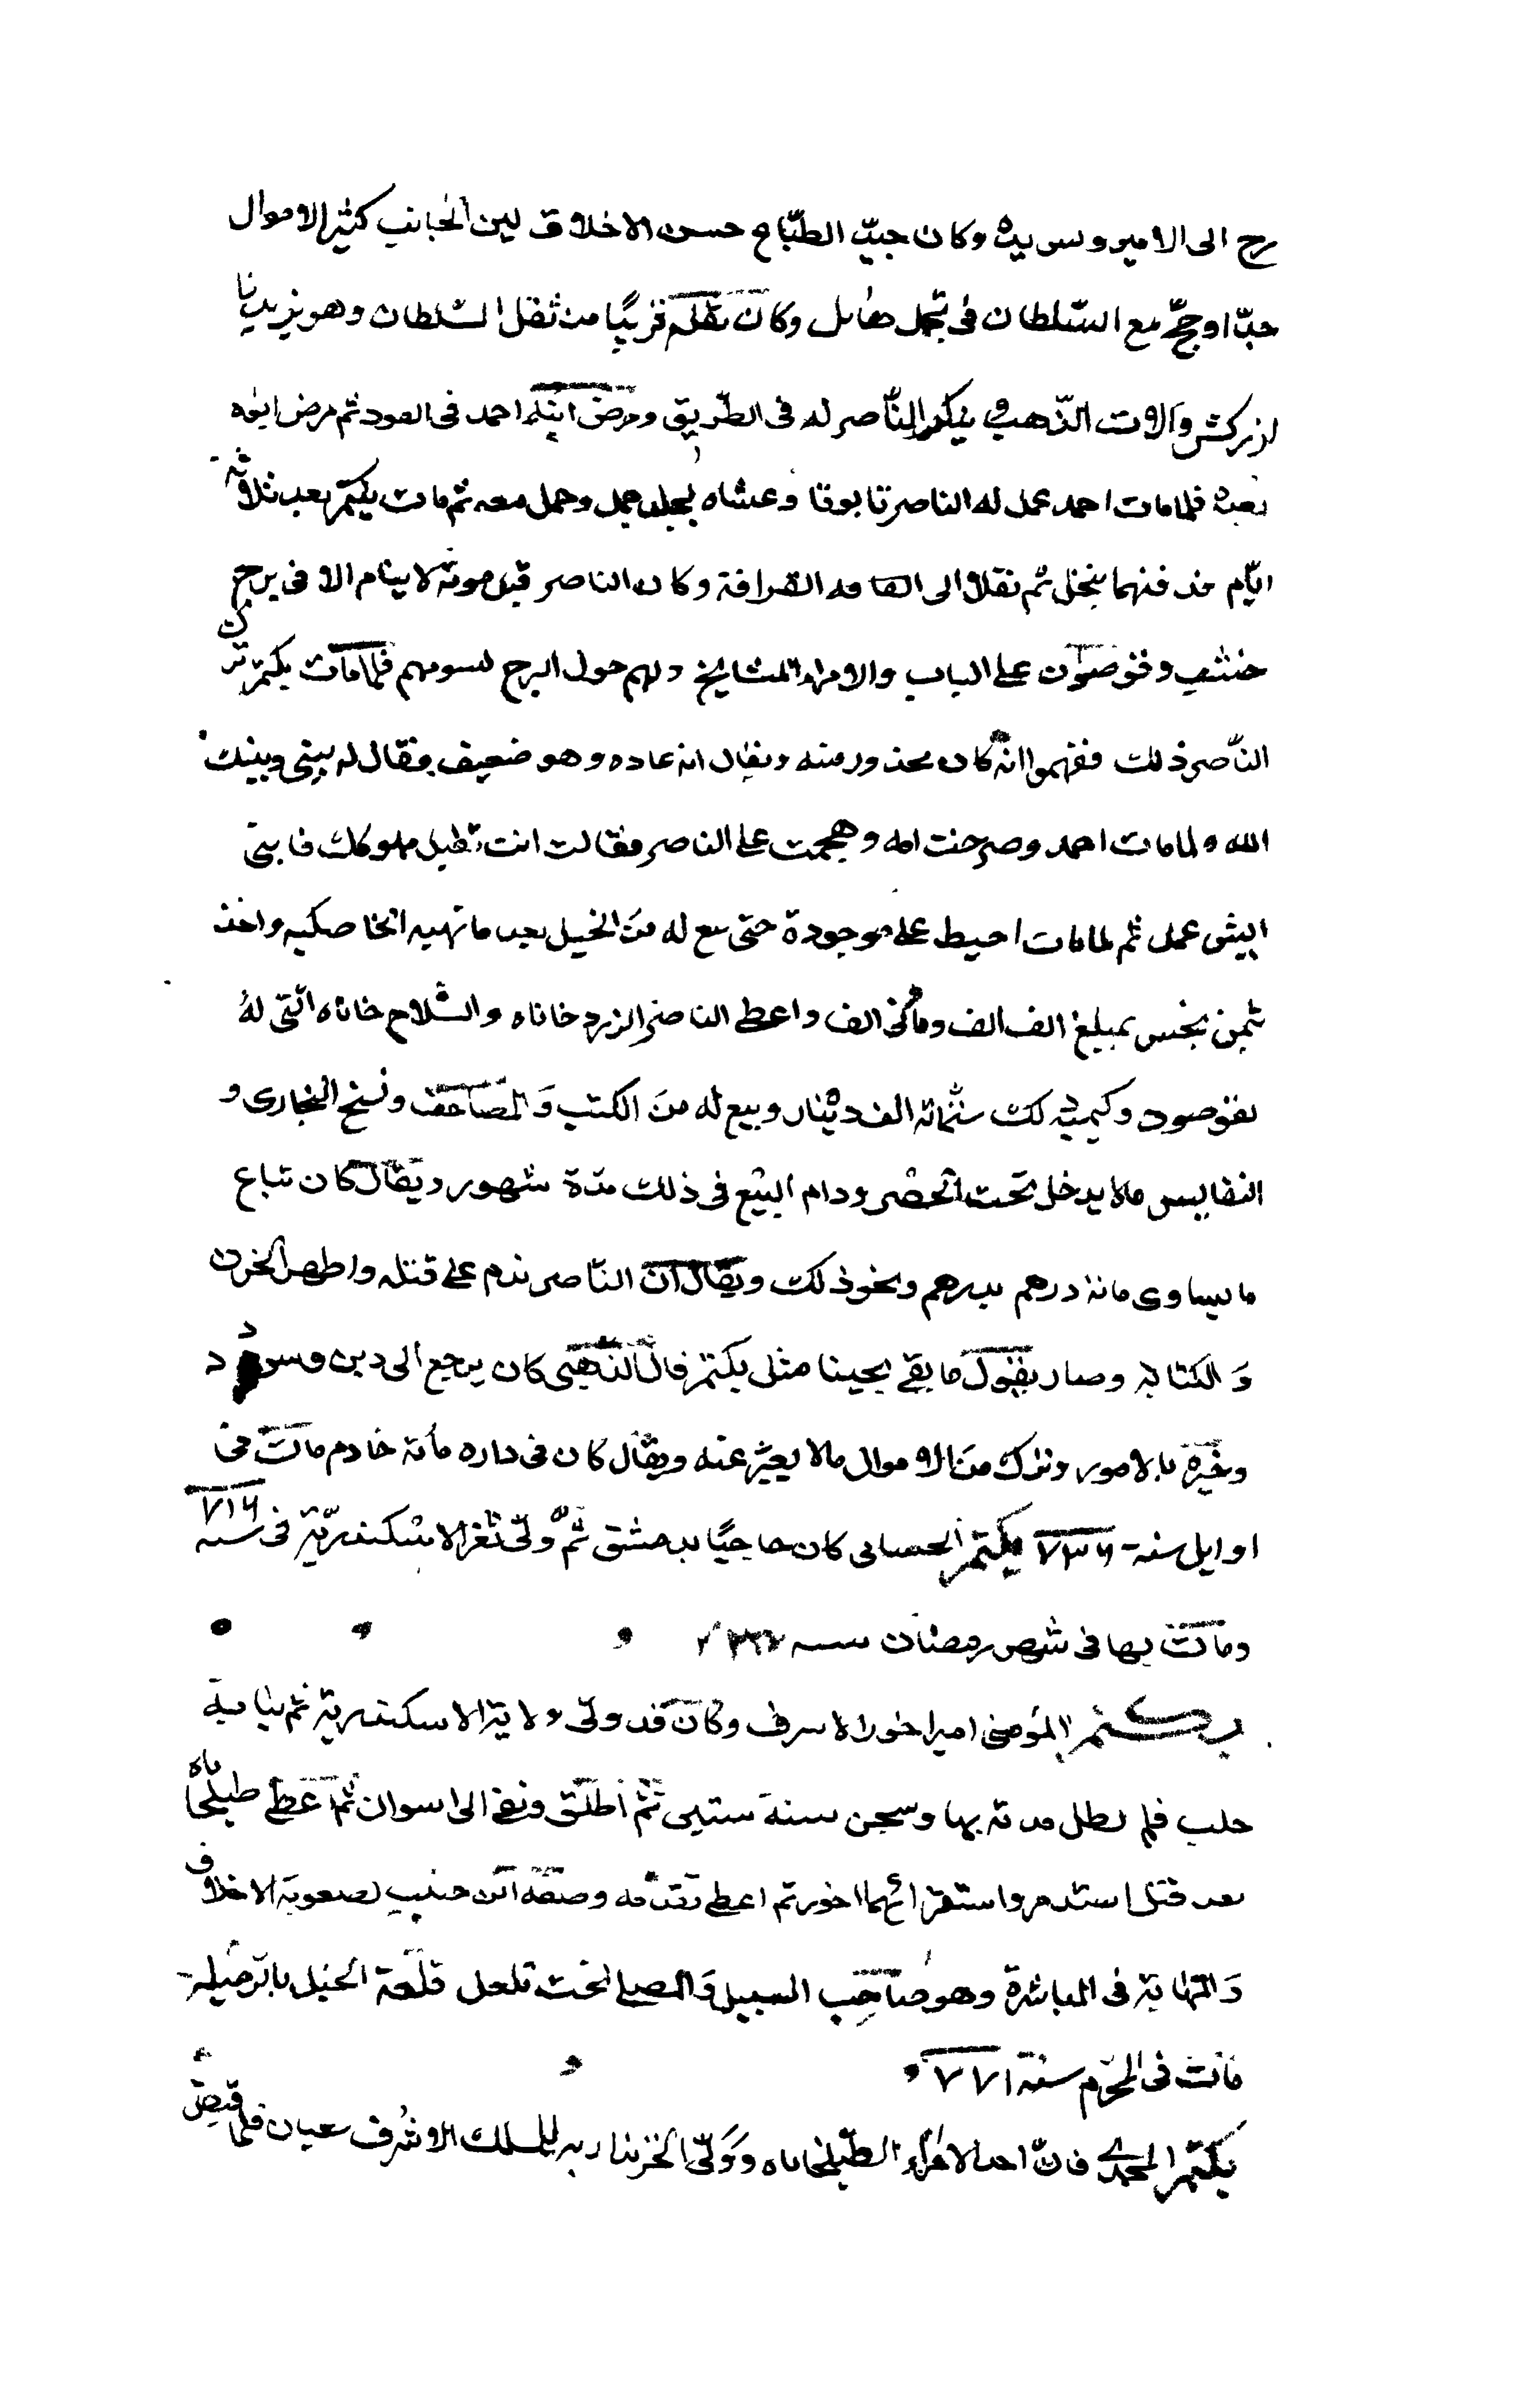 رج الى الامير وسريره وكان جيّد الطبّاع حسن الاخلاق لين الجانب كثير الاموال
جدّا وحجّ مع السّلطان فى تجمل هائل وكان ثقله قريبًا من ثقل السّلطان وهو يزيد بال
لزركش وآلات الذّهب وتنكر النّاصر له فى الطّريق ومرض ابنه احمد فى العود ثم مرض ابوه
بعده فلما مات احمد عمل له الناصر تابوتا وغشاه بجلد جمل وحمل معه ثم مات بكتمر بعد ثلاثة
ايّام فدفنهما بنخل ثم نقلا الى القرافة وكان الناصر قبل موته لا ينام الا فى برج
خشب وقوصون على الباب والامراء المشايخ كلهم حول البرج بسيوفهم فلما مات بكتمر ترك
النّاصر ذلك ففهموا انه كان محذور منه ويقال انه عاده وهو ضعيف فقال له بينى وبينك
الله ولما مات احمد وصرخت امه وهجمت على الناصر فقالت انت تقتل مملوكك فابنى
ايش عمل ثم لما مات احيط على موجوده حتى بيع له من الخيل بعد ما نهبه الخاصكيه واخذ
بثمن بخس بمبلغ الف الف ومأتى الف واعطى الناصر الزردخاناه والسّلاح خاناه الّتى له
لقوصون وقيمة ذلك ستمائة الف دينار وبيع له من الكتب والمصاحف ونسخ البخارى و
النفايس مالا يدخل تحت الحصر ودام البيع فى ذلك مدّة شهور ويقال كان تباع
ما يساوى مائة درهم بدرهم ونحو ذلك ويقال ان النّاصر ندم على قتله واظهر الحزن
والكئابة وصار يقول ما بقى يجينا مثل بكتمر قال الذّهبى كان يرجع الى دين وسودد
وخبرة بالامور وترك من الاموال مالا يعبّر عنه ويقال كان فى داره مأتة خادم مات فى
اوايل سنة ٧٣٦ بكتمر الحسامى كان حاجبًا بدمشق ثمّ ولّى ثغر الاسكندريّة فى سنه ٧١٦
ومات بها فى شهر رمضان سنه
بكتمر المؤمنى امير اخور الاشرف وكان قد ولّى ولاية الاسكندريّة ثم نيابة
حلب فلم تطل مدته بها وسجن سنة ستين ثمّ اطلق ونفى الى اسوان ثم اعطى طبلخاناه
بعد قتل استدمر واستقر امير اخور ثم اعطى تقدمه وصفه ابن حبيب بصعوبة الاخلاق
والمهابة فى المباشرة وهو صاحب السبيل والمصلى تحت قلعة الجبل بالرميلة
مات فى المحرّم سنة ٧٧١
بكتمر المحمدى كان احد الامراء الطّبلخاناه وولّى الخزنداريه للملك الاشرف شعبان فلما قبض